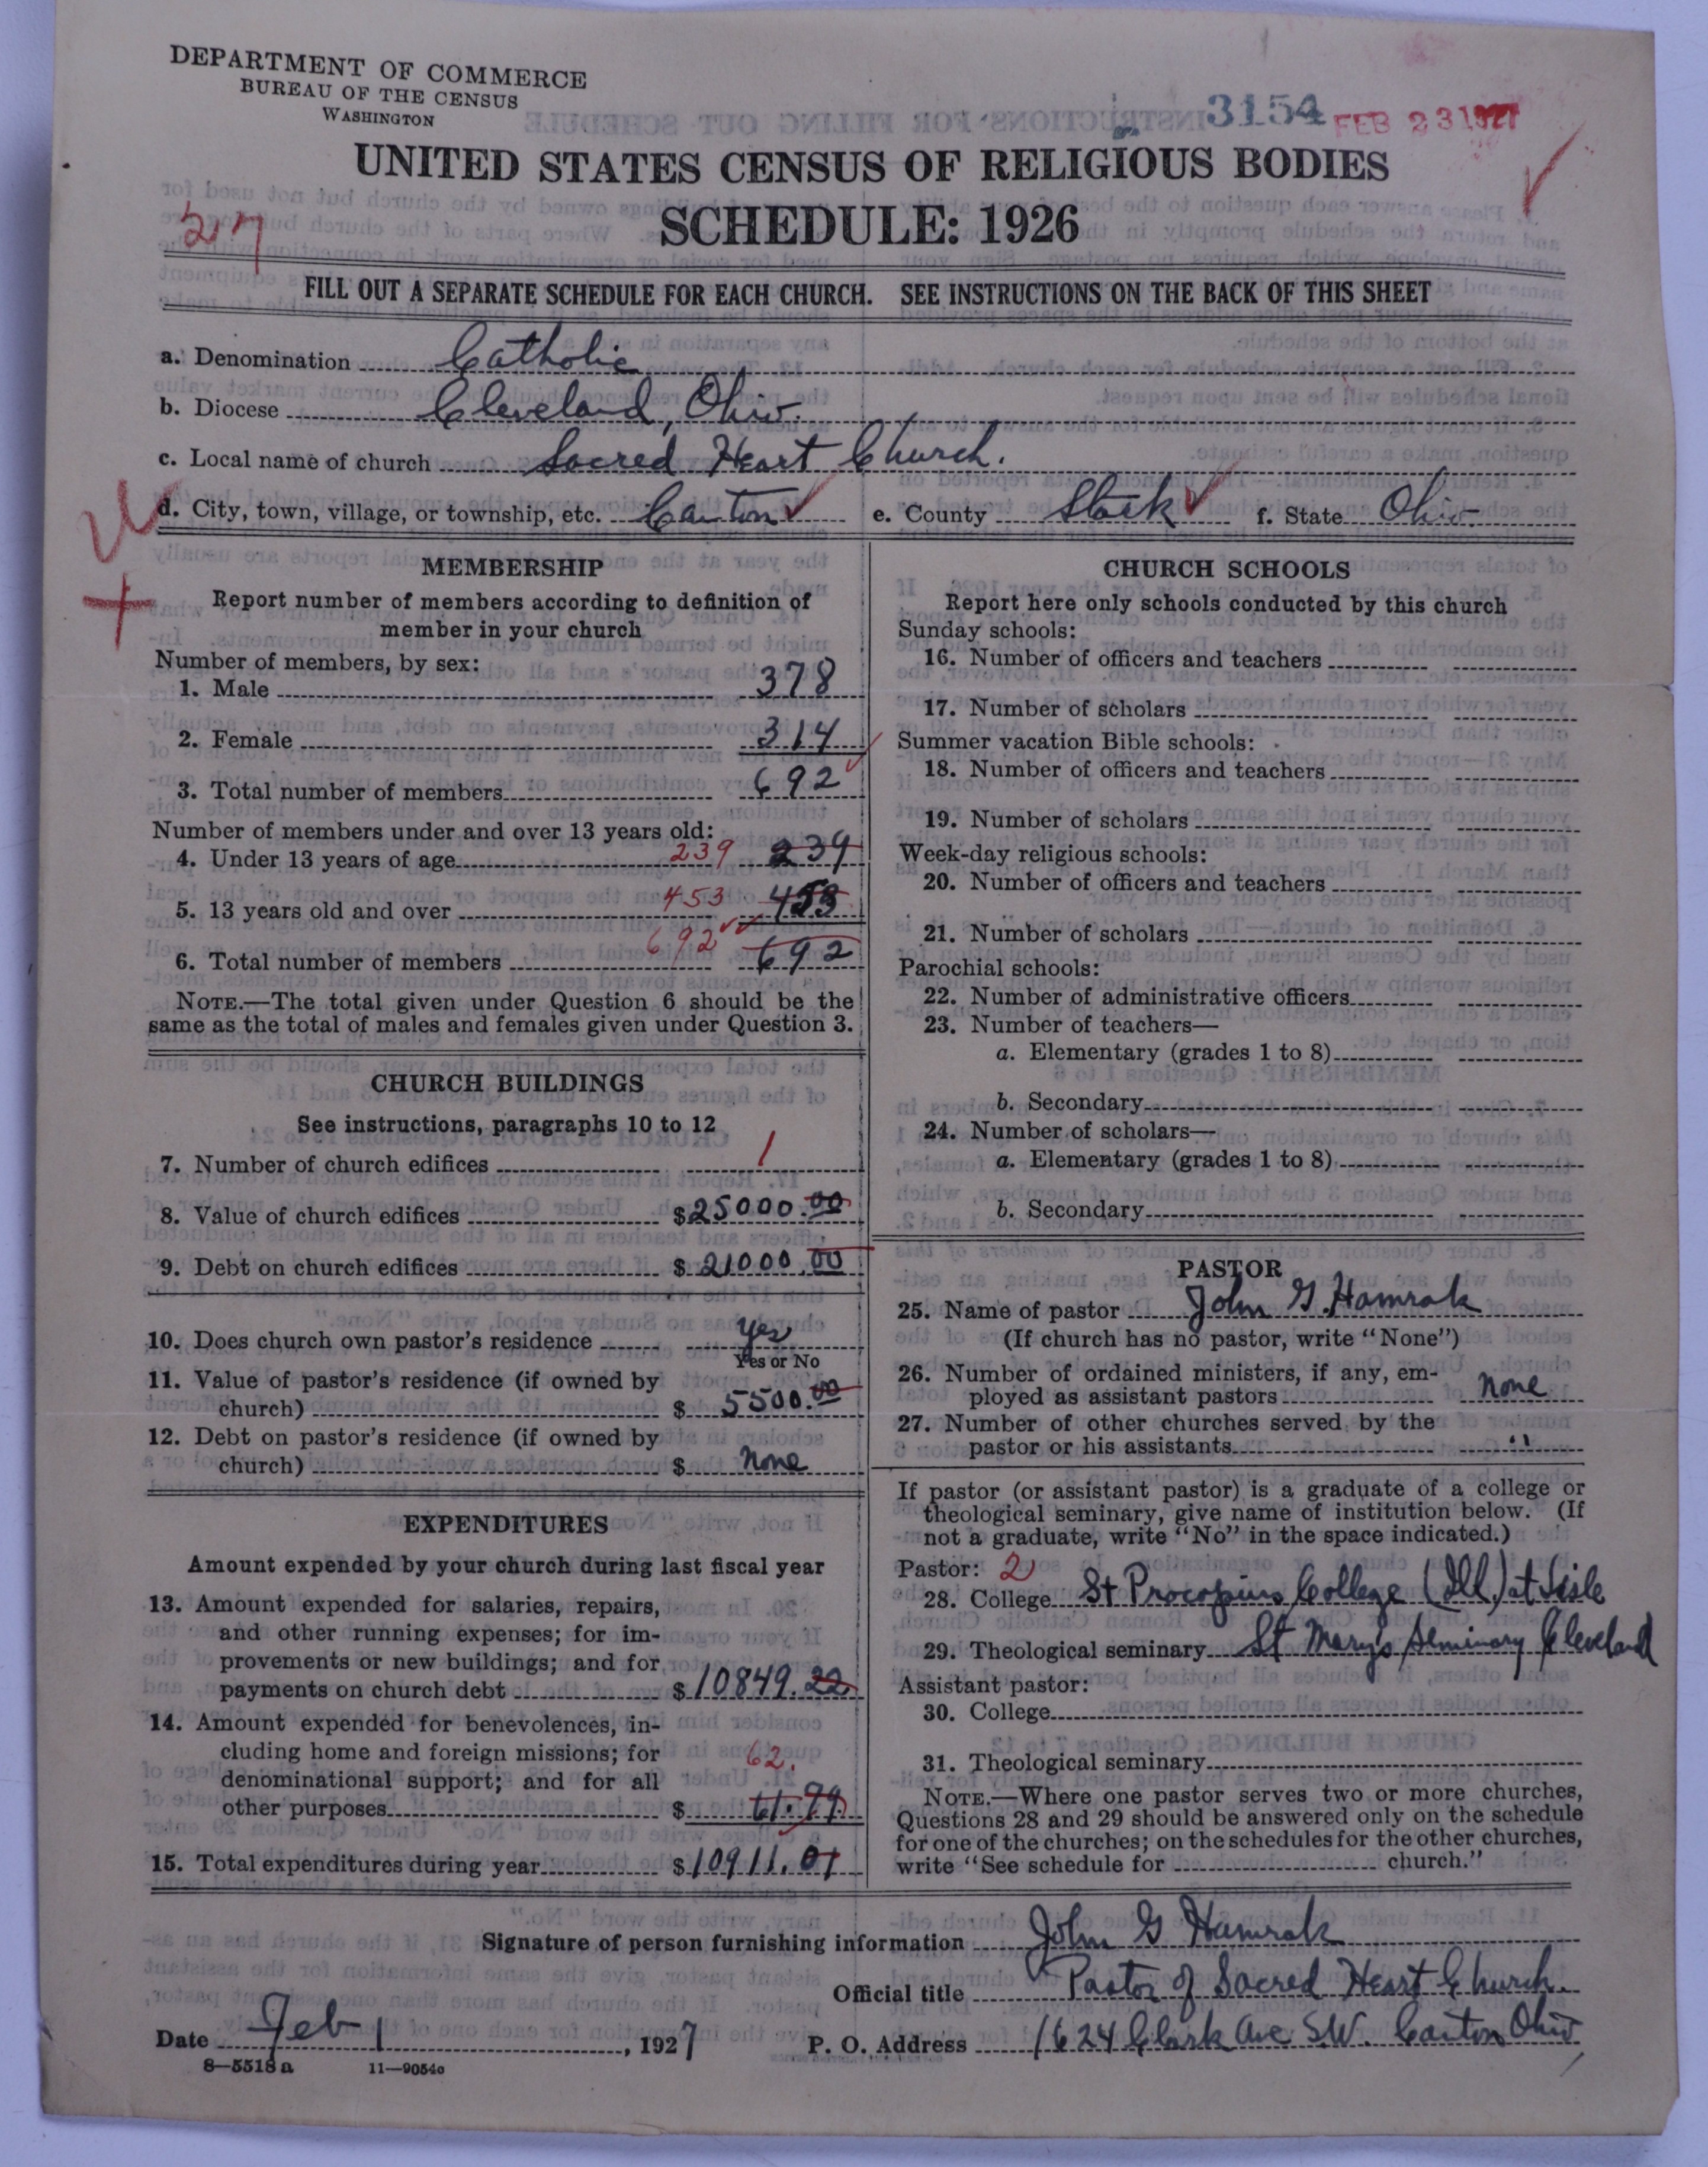 DEPARTMENT OF COMMERCE
BUREAU OF THE CENSUS
WASHINGTON
3154 FEB 23 1927
UNITED STATES CENSUS OF RELIGIOUS BODIES
SCHEDULE: 1926
27
FILL OUT A SEPARATE SCHEDULE FOR EACH CHURCH. SEE INSTRUCTIONS ON THE BACK OF THIS SHEET
a. Denomination Catholic
b. Diocese Cleveland, Ohio.
c. Local name of church Sacred Heart Church.
d. City, town, village, or township, etc. Canton ✓ e. County Stark ✓ f. State Ohio
MEMBERSHIP
Report number of members according to definition of
member in your church
Number of members, by sex:
1. Male 378
2. Female 314
3. Total number of members 692
Number of members under and over 13 years old:
4. Under 13 years of age 239 239
5. 13 years old and over 453 453
6. Total number of members 692 692
NOTE.—The total given under Question 6 should be the
same as the total of males and females given under Question 3.
CHURCH BUILDINGS
See instructions, paragraphs 10 to 12
7. Number of church edifices 1
8. Value of church edifices $25000.00
9. Debt on church edifices $21000.00
10. Does church own pastor's residence Yes
Yes or No
11. Value of pastor's residence (if owned by
church) $5500.00
12. Debt on pastor's residence (if owned by
church) $ None
EXPENDITURES
Amount expended by your church during last fiscal year
13. Amount expended for salaries, repairs,
and other running expenses; for im-
provements or new buildings; and for
payments on church debt $10849.22
14. Amount expended for benevolences, in-
cluding home and foreign missions; for 62.
denominational support; and for all
other purposes $ 61.79
15. Total expenditures during year $10911.01
CHURCH SCHOOLS
Report here only schools conducted by this church
Sunday schools:
16. Number of officers and teachers
17. Number of scholars
Summer vacation Bible schools:
18. Number of officers and teachers
19. Number of scholars
Week-day religious schools:
20. Number of officers and teachers
21. Number of scholars
Parochial schools:
22. Number of administrative officers
23. Number of teachers—
a. Elementary (grades 1 to 8)
b. Secondary
24. Number of scholars—
a. Elementary (grades 1 to 8)
b. Secondary
PASTOR
25. Name of pastor John G. Hamrak
(If church has no pastor, write "None")
26. Number of ordained ministers, if any, em-
ployed as assistant pastors None
27. Number of other churches served by the
pastor or his assistants "
If pastor (or assistant pastor) is a graduate of a college or
theological seminary, give name of institution below. (If
not a graduate, write "No" in the space indicated.)
Pastor: 2
28. College St Procopius College (Ill.) at Lisle
29. Theological seminary St Mary's Seminary Cleveland
Assistant pastor:
30. College
31. Theological seminary
NOTE.—Where one pastor serves two or more churches,
Questions 28 and 29 should be answered only on the schedule
for one of the churches; on the schedules for the other churches,
write "See schedule for church."
Signature of person furnishing information John G Hamrak
Official title Pastor of Sacred Heart Church.
Date Feb 1, 1927 P. O. Address 1624 Clark Ave S.W. Canton Ohio
8—5518a 11—9054c